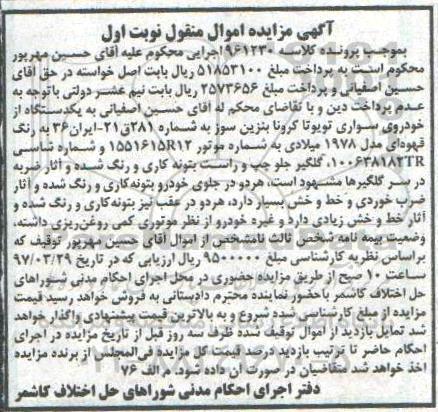 آگهی مزایده اموال منقول نوبت اول
بموجب پرونده کلاسه ۹۶۱۲۳۰اجرایی محکوم علیه آقای حسین مهرپور
محکوم است به پرداخت مبلغ ۵۱۸۵۳۱۰۰ ریال بابت اصل خواسته در حق آقای
حسین اصفیانی و پرداخت مبلغ ۲۵۷۳۶۵۶ ریال بابت نیم عشر دولتی باتوجه به
عدم پرداخت دین و با تقاضای محکم له آقای حسین اصفیانی به یکدستگاه از
خودروی سواری تویوتا کرونا بنزین سوز به شماره ۲۸۱ق۲۱-ایران۳۶ به رنگ
قهوه‌ای مدل ۱۹۷۸ میلادی به شماره موتور ۱۵۵۱۶۱۵R۱۲ و شماره شناسی
۱۰۰۶۳۸۱۸۲TR، گلگیر جلو چپ و راست بتونه کاری و رنگ شده و آثار ضربه
در سر گلگیرها مشهود است، هردو در جلوی خودرو بتونه‌کاری و رنگ شده و آثار
ضرب خوردی و خط و خش بسیار دارد، هردو در عقب نیز بتونه کاری و رنگ شده و
آثار خط و خش زیادی دارد و غیره خودرو از نظر موتوری کمی روغن‌ریزی داشته،
وضعیت بیمه نامه شخص ثالث نامشخص از اموال آقای حسین مهرپور توقیف که
براساس نظریه کارشناسی مبلغ ۹۵۰۰۰۰۰۰ ریال ارزیابی که در تاریخ ۹۷/۰۳/۲۹
ساعت ۱۰ صبح از طریق مزایده حضوری در محل اجرای احکام مدنی شوراهای
حل اختلاف کاشمر باحضور نماینده محترم دادستانی به فروش خواهد رسید قیمت
مزایده از مبلغ کارشناسی شده شروع و به بالاترین قیمت پیشنهادی واگذار خواهد
شد تمایل بازدید از اموال توقیف شده ظرف سه روز قبل از تاریخ مزایده در اجرای
احکام حاضر تا ترتیب بازدید درصد قیمت کل مزایده فی‌المجلس از برنده مزایده
اخذ خواهد شد متقاضیان در صورت آن داده شود. م الف ۷۶
دفتر اجرای احکام مدنی شوراهای حل اختلاف کاشمر